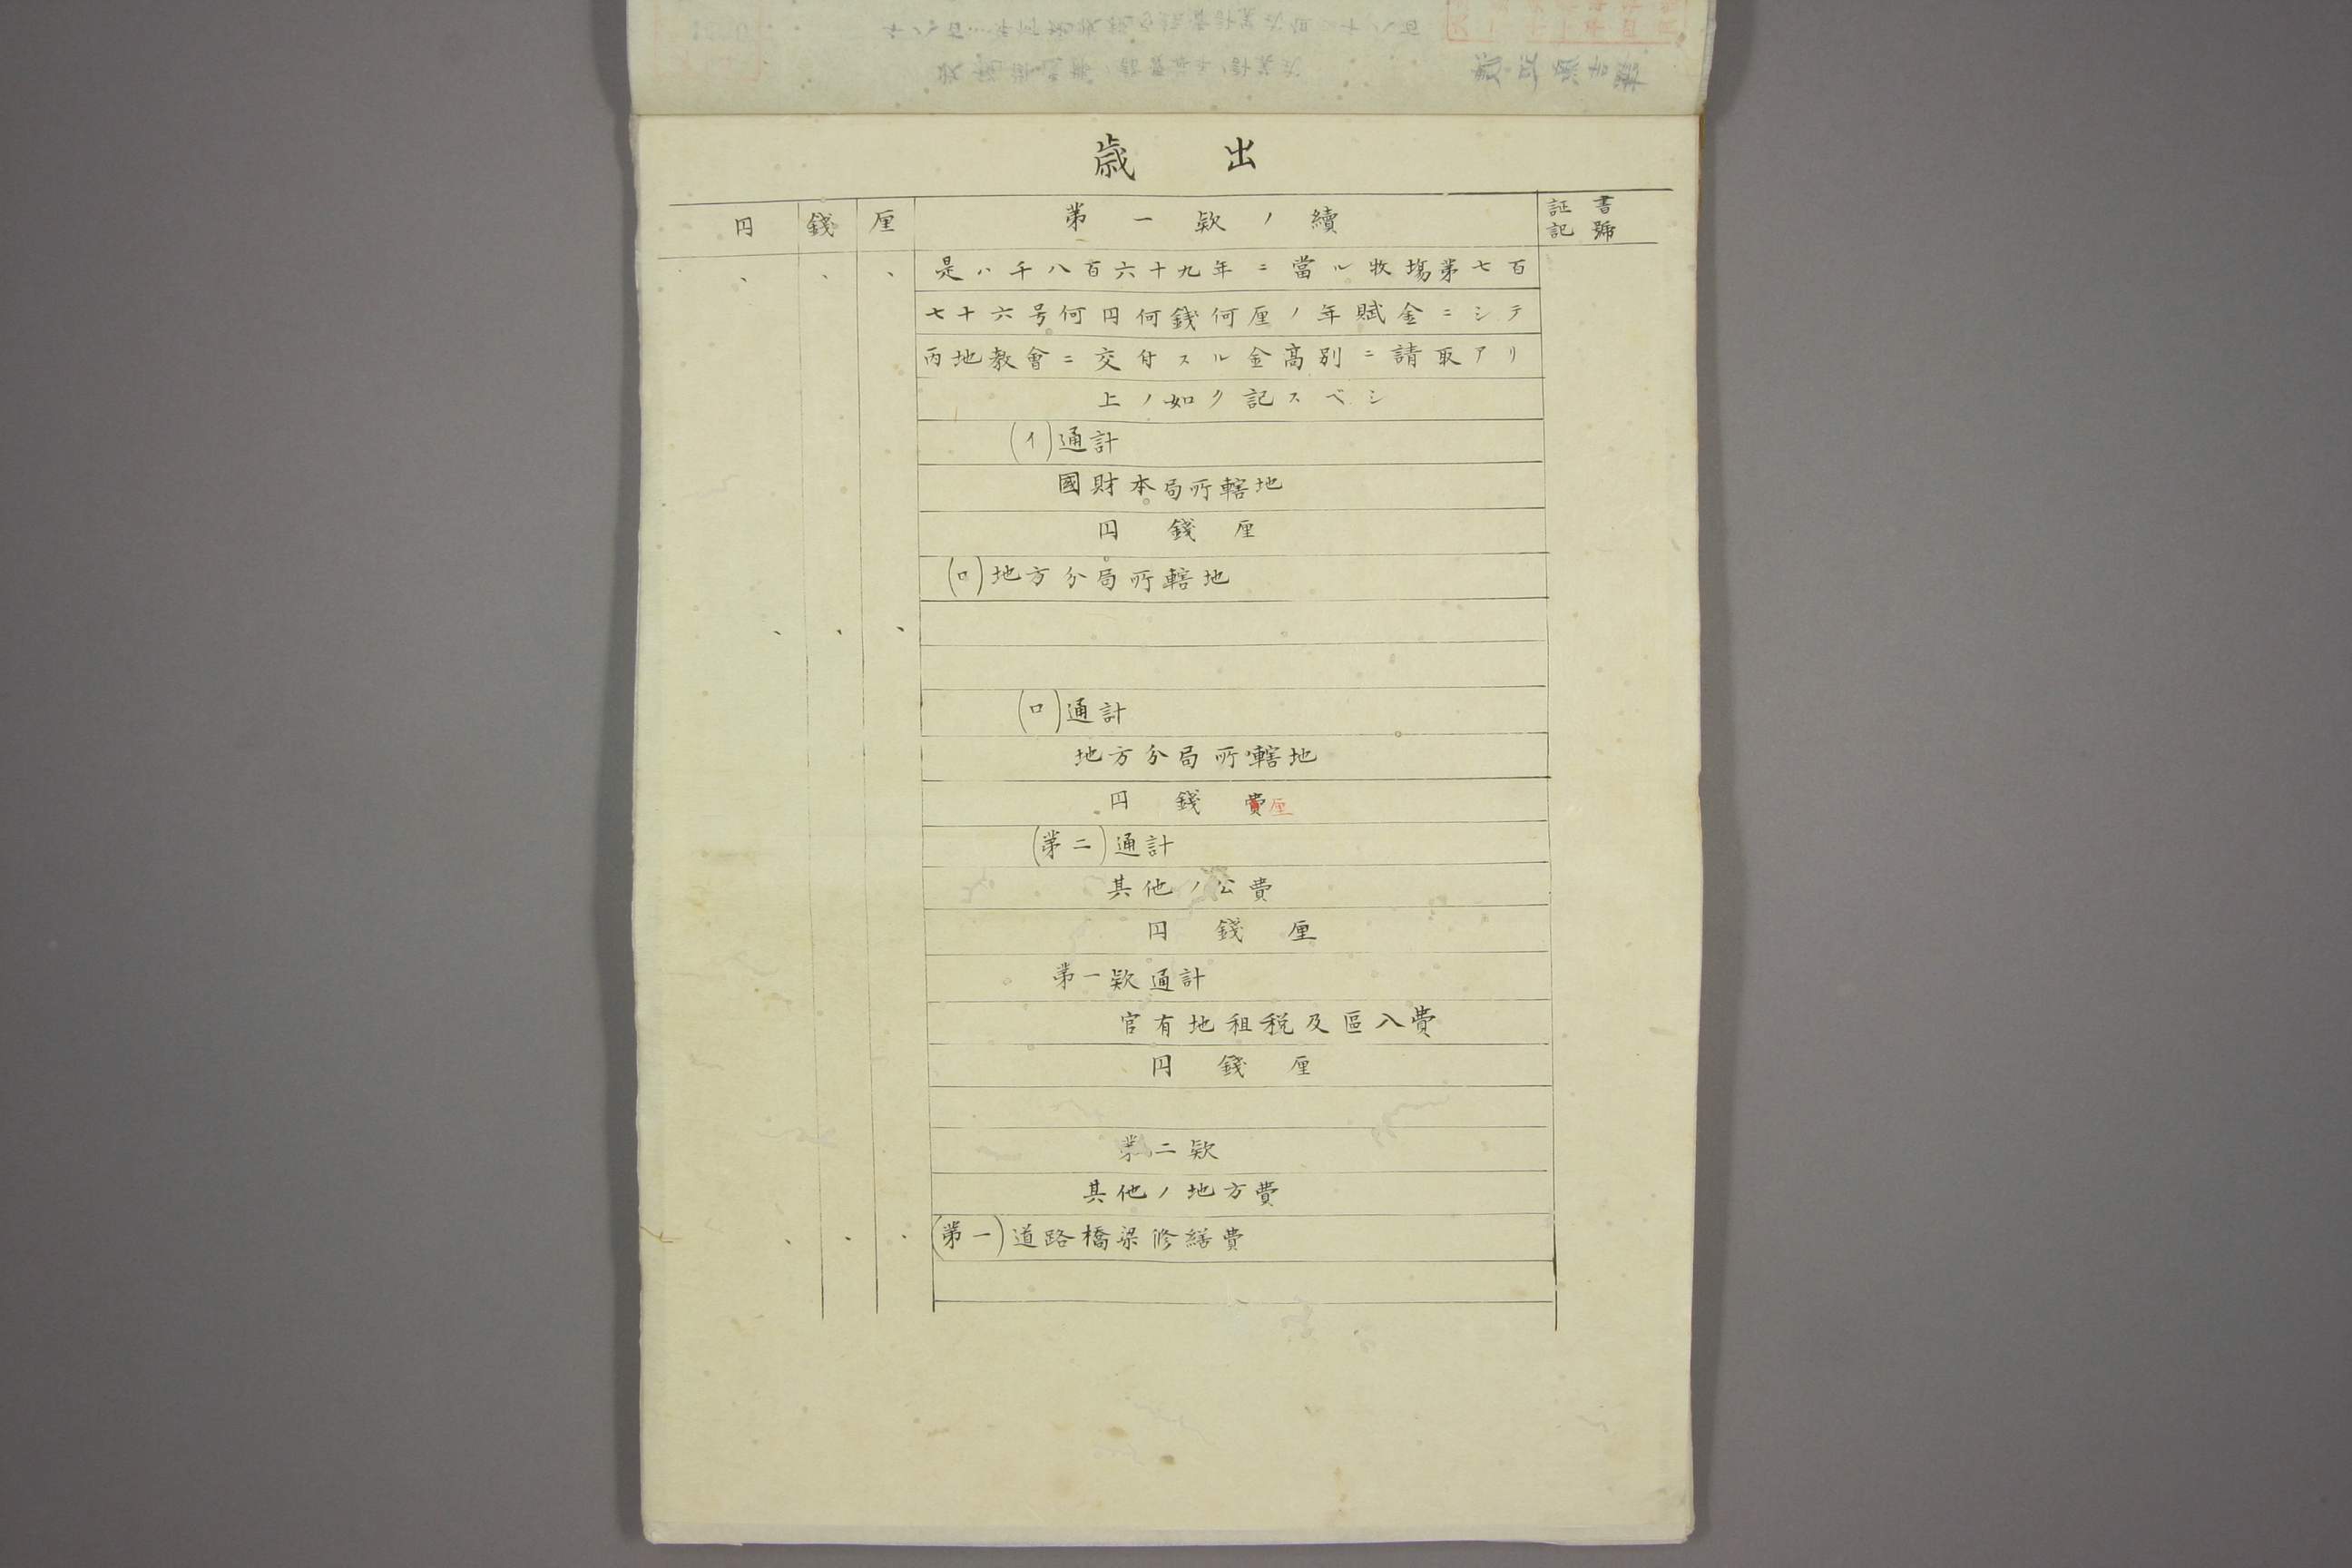 歳出
円 錢 厘 第一欵ノ續 証書
記號
是ハ千八百六十九年ニ當ル牧塲第七百
七十六号何円何錢何厘ノ年賦金ニシテ
丙地教會ニ交付スル金高別ニ請取アリ
上ノ如ク記スベシ
(イ)通計
國財本局所轄地
円 錢 厘
(ロ)地方分局所轄地
(ロ)通計
地方分局所轄地
円 錢 費厘
(第二)通計
其他ノ公費
円 錢 厘
第一欵通計
官有地租税及區入費
円 錢 厘
第二欵
其他ノ地方費
(第一)道路橋梁修繕費